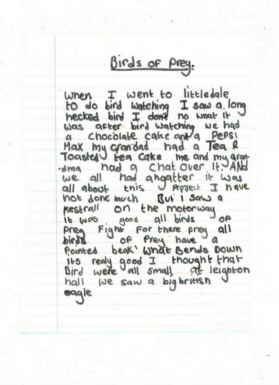 Birds of Prey.
when I went to littledale
to do bird watching I saw a long
necked bird I dont no wont it
was after bird watching we had
a chocolate cake and a PePSi
Max my Grandad had a Tea &
Toasted tea cake me and my gran
-drea had a chat over it. AND
we all had a natter it was
all about this Project I have
not done much But I saw a
kestrall on the motorway
it was good all birds of
Prey Fight For there prey all
birds of Prey have a
Pointed beak what Bends Down
its realy good I thought that
Bird were all small at leighton
hall we saw a big british
eagle